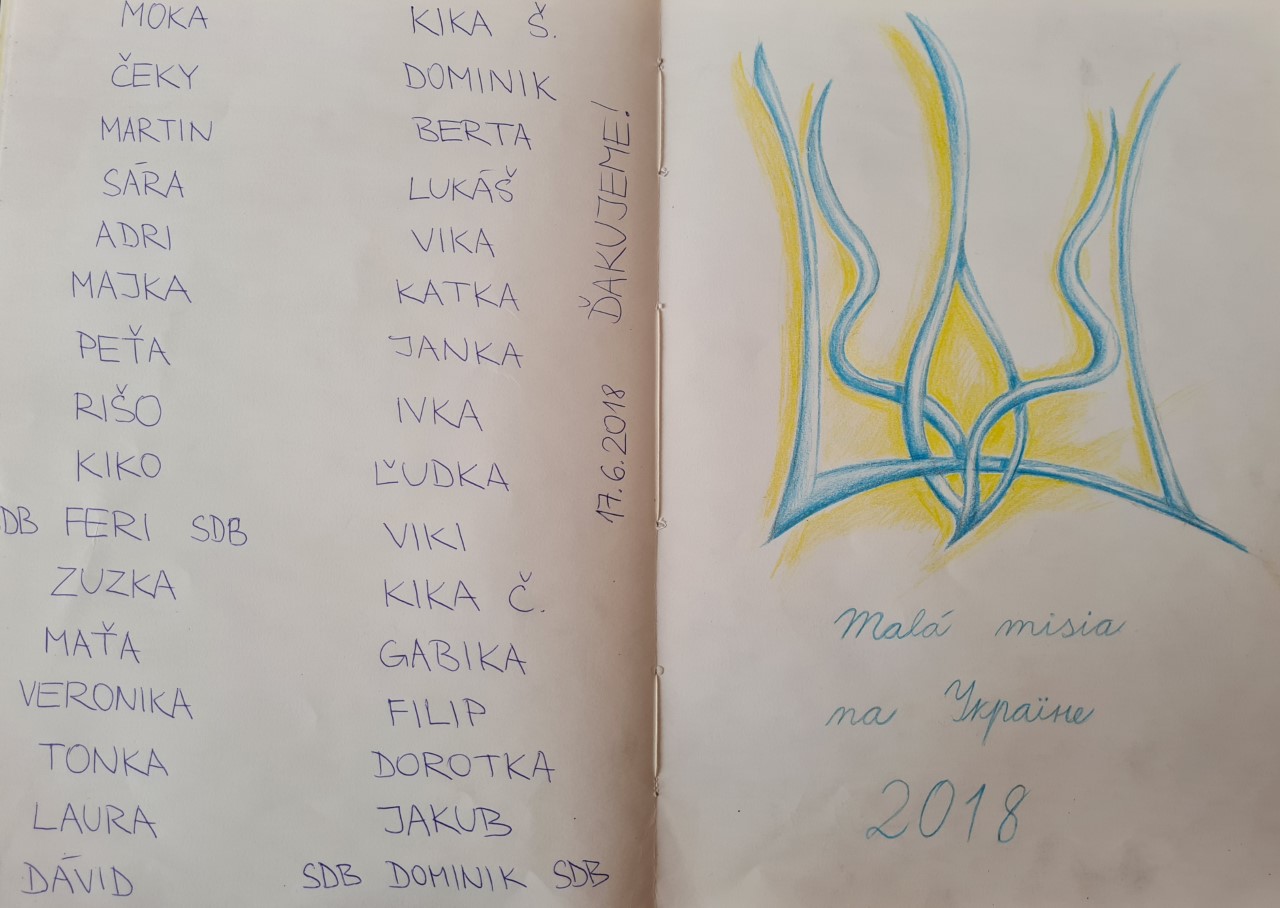 MOKA
ČEKY
MARTIN
SÁRA
ADRI
MAJKA
PEŤA
RIŠO
KIKO
SDB FERI SDB
ZUZKA
MAŤA
VERONIKA
TONKA
LAURA
DÁVID
KIKA Š.
DOMINIK
BERTA
LUKÁŠ
VIKA
KATKA
JANKA
IVKA
ĽUDKA
VIKI
KIKA Č.
GABIKA
FILIP
DOROTKA
JAKUB
SDB DOMINIK SDB
17.6.2018 ĎAKUJEME!
Malá misia
na Україне
2018